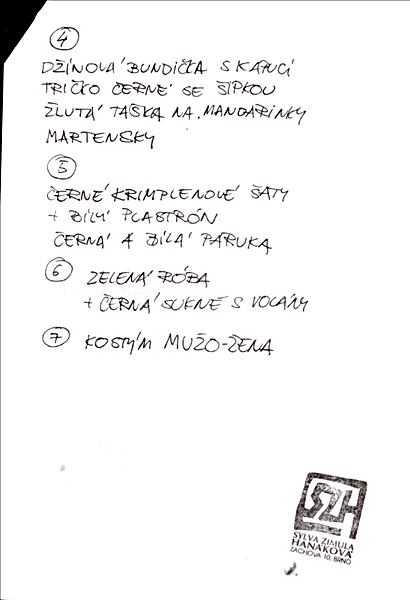 4
DŽÍNOVÁ BUNDIČKA S KAPUCÍ
TRIČKO ČERNÉ SE ŠIPKOU
ŽLUTÁ TAŠKA NA MANDARINKY
MARTENSKY
5
ČERNÉ KRIMPLENOVÉ ŠATY
+ BÍLÝ PLASTRÓN
ČERNÁ A BÍLÁ PARUKA
6 ZELENÁ RÓBA
+ ČERNÁ SUKNĚ S VOLÁNY
7 KOSTÝM MUŽO-ŽENA
SZH
SYLVA ZIMULA
HANÁKOVÁ
ZACHOVA 10, BRNO